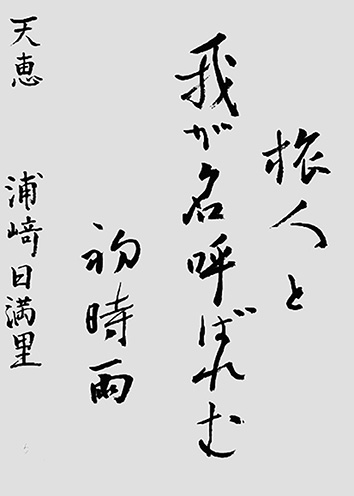 旅人と
我が名呼ばれむ
初時雨
天恵 浦﨑日満里